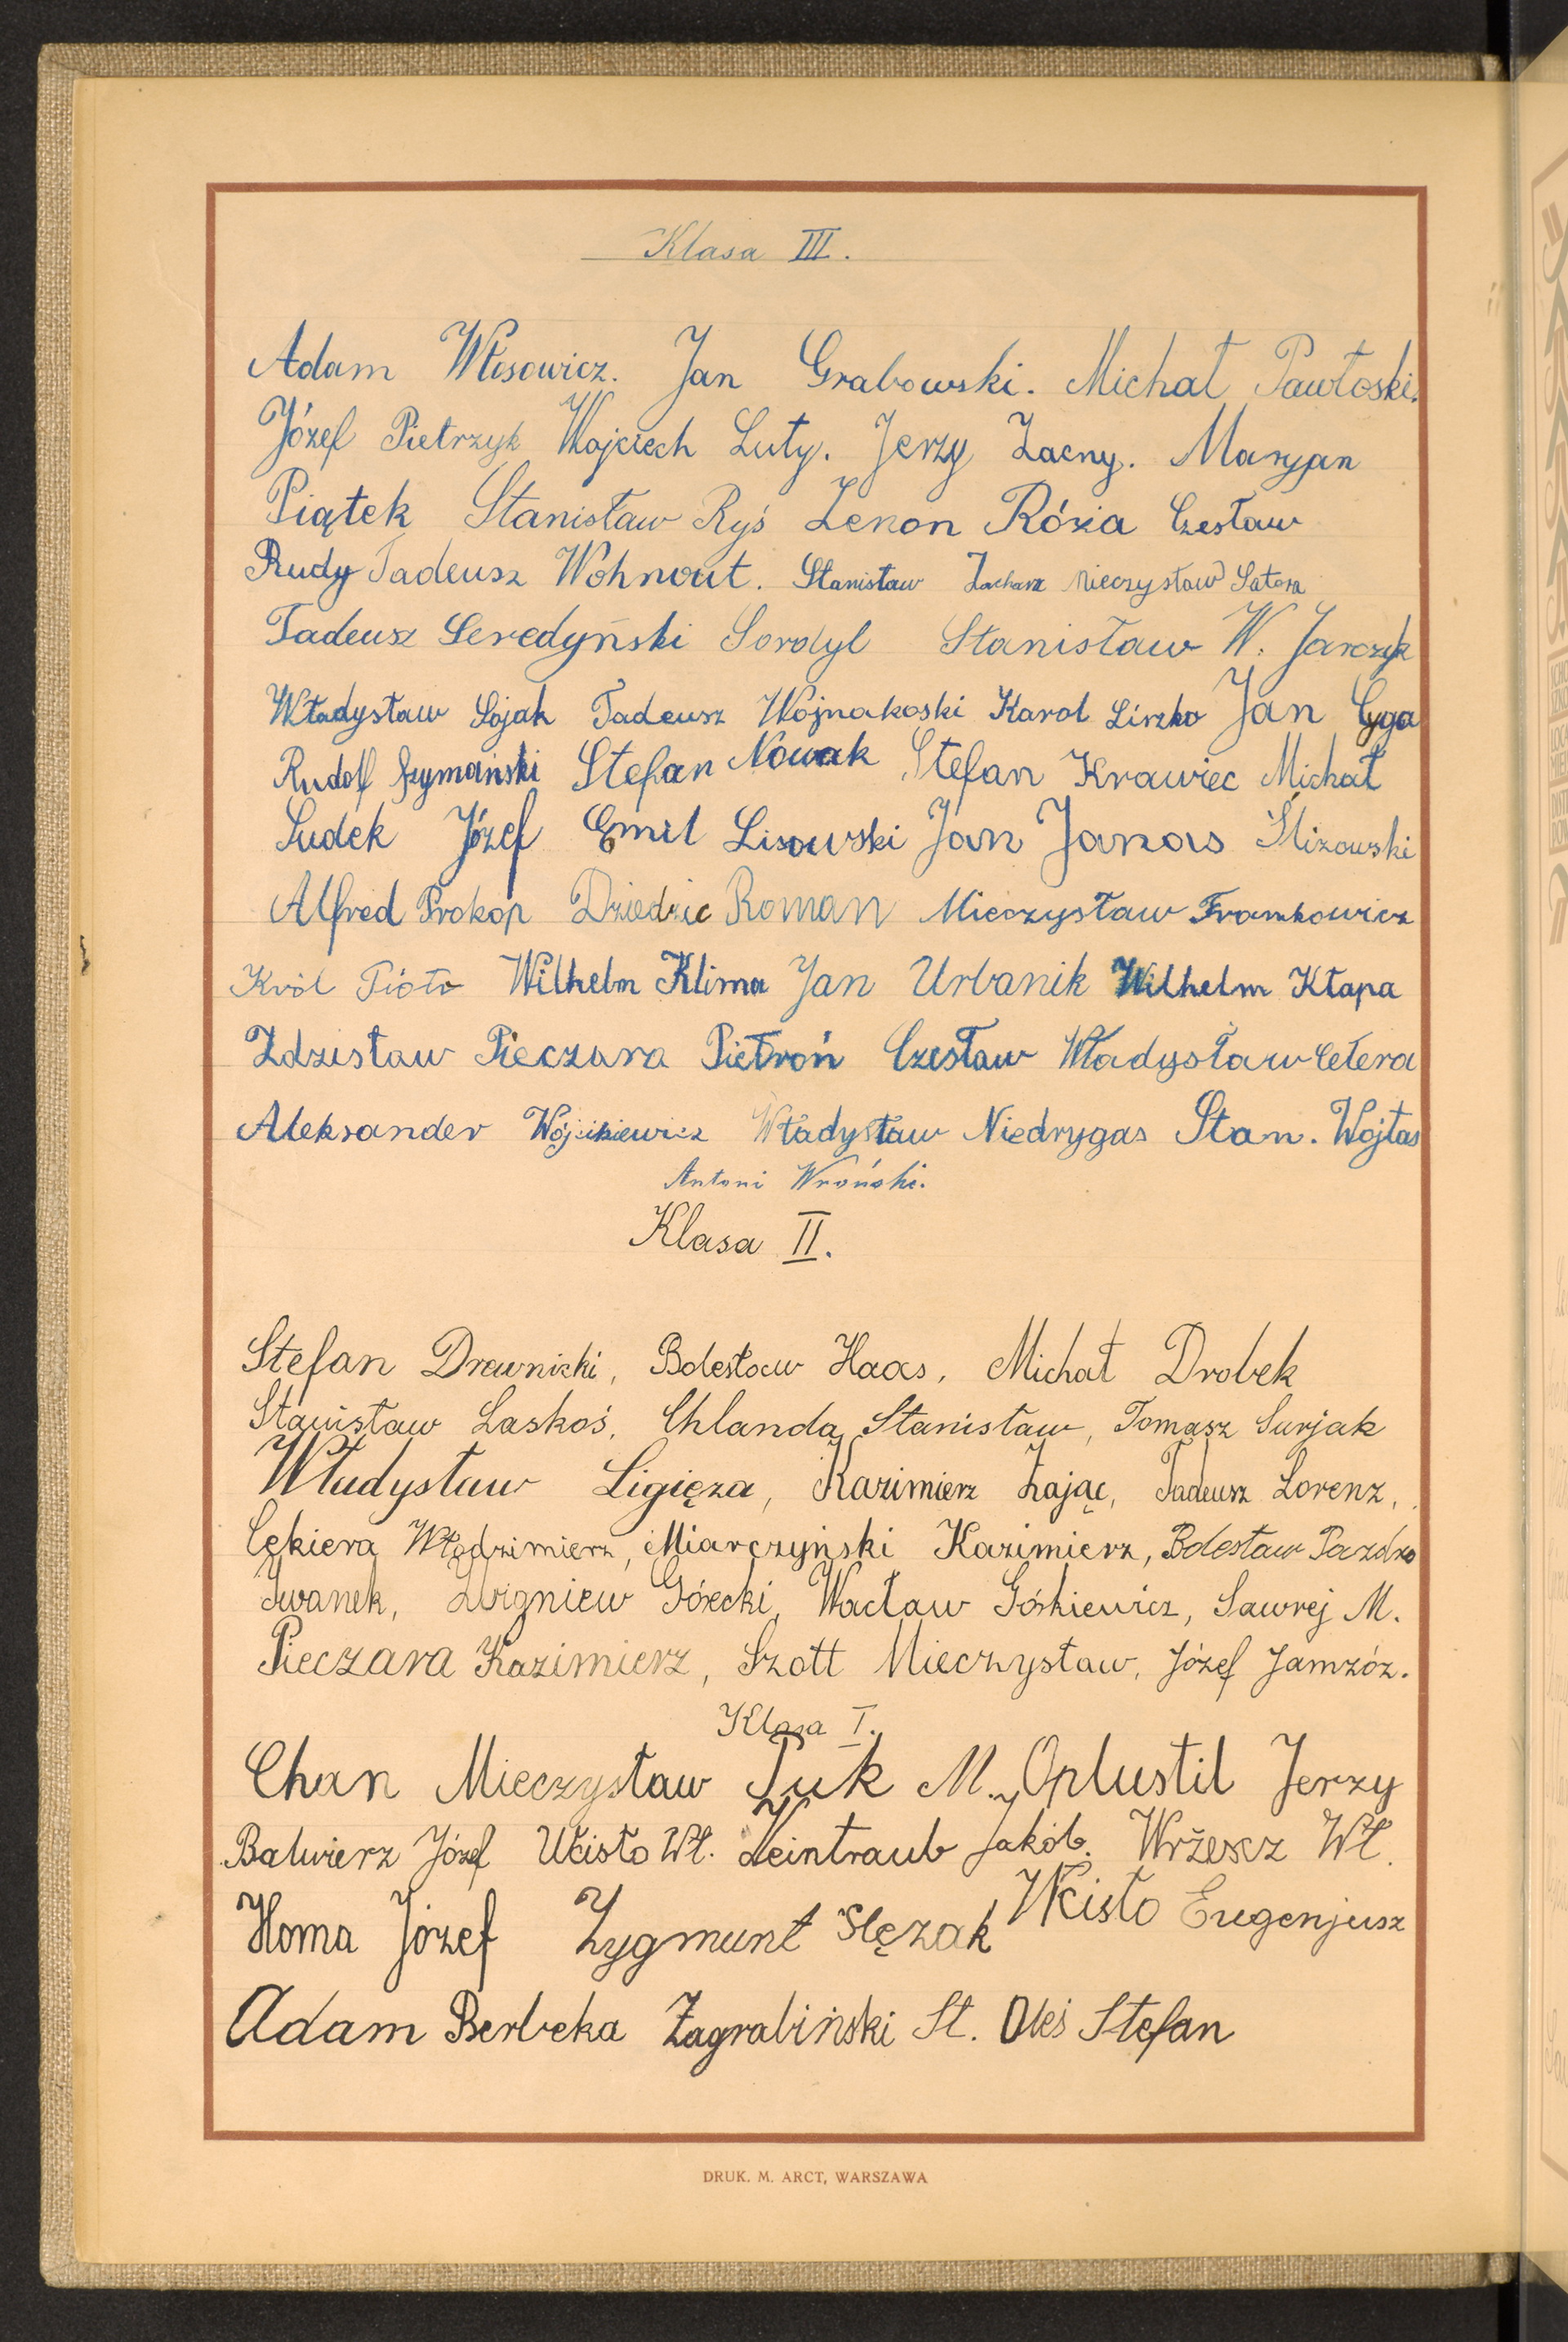 Klasa III.
Adam Włosowicz. Jan Grabowski. Michał Pawłoski.
Józef Pietrzyk Wojciech Luty. Jerzy Zacny. Maryjan
Piątek Stanisław Ryś Zenon Rózia Czesław
Rudy Tadeusz Wohnout. Stanisław Zachara Mieczysław Satora
Tadeusz Seredyński Sordyl Stanisław W. Jarczyk
Władysław Sojak Tadeusz Wojnakoski Karol Liszko Jan Cyga
Rudolf Szymański Stefan Nowak Stefan Krawiec Michał
Sudek Józef Emil Lisowski Jan Janas Ślizowski
Alfred Prokop Dziedzic Roman Mieczysław Frankowicz
Król Piotr Wilhelm Klima Jan Urbanik Wilhelm Kłapa
Zdzisław Pieczara Pietroń Czesław Władysław Cetera
Aleksander Wójcikiewicz Władysław Niedrygas Stan. Wojtas
Antoni Wroński.
Klasa II.
Stefan Drewnicki, Bolesław Haas, Michał Drobek
Stanisław Laskoś, Chlanda Stanisław, Tomasz Surjak
Władysław Ligięza, Kazimierz Zając, Tadeusz Lorenz,
Cękiera Włodzimierz, Miarczyński Kazimierz, Bolesław Pazdro
Iwanek, Zbigniew Górecki, Wacław Góskiewicz, Sawrej M.
Pieczara Kazimierz, Szott Mieczysław, Józef Jamzóz.
Klasa I.
Chan Mieczysław Puk M. Oplustil Jerzy
Balwierz Józef Wcisło Wł. Weintraub Jakób. Wrzeszcz Wł.
Homa Józef Zygmunt Ślęzak Wcisło Eugenjusz
Adam Berbeka Zagrabiński St. Oleś Stefan
DRUK. M. ARCT, WARSZAWA